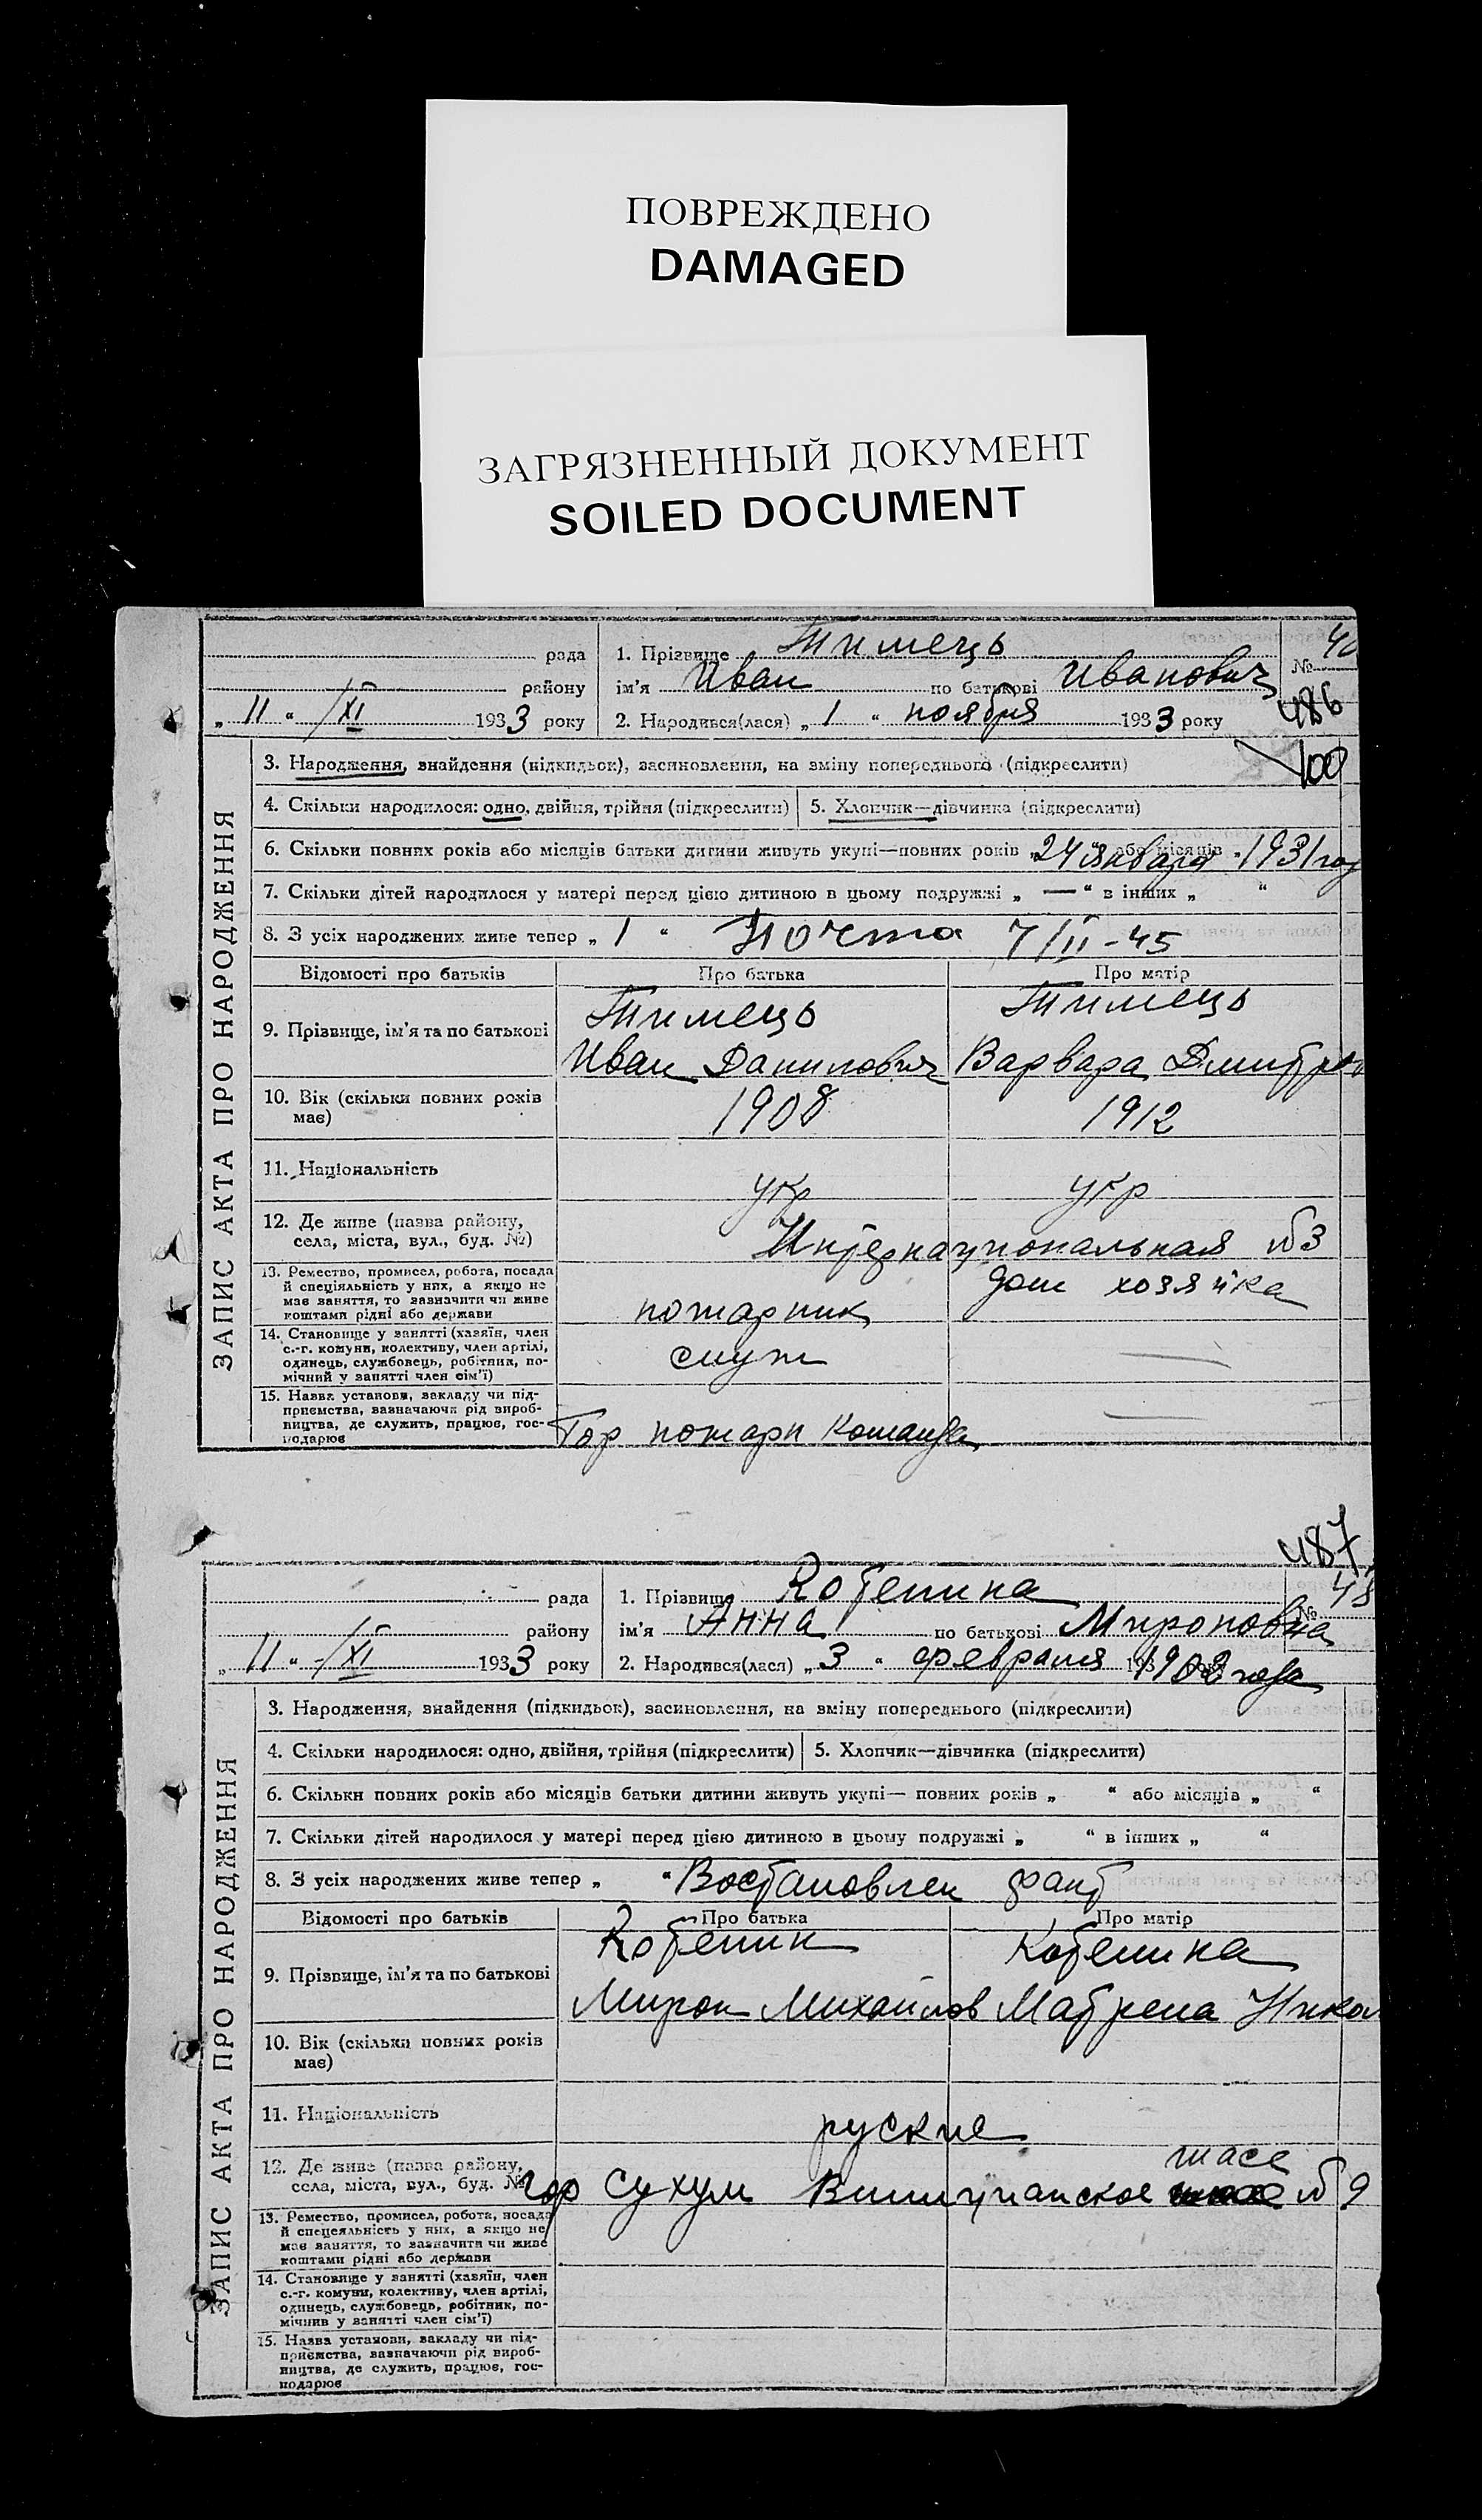 ПОВРЕЖДЕНО
DAMAGED
ЗАГРЯЗНЕННЫЙ ДОКУМЕНТ
SOILED DOCUMENT
ЗАПИС АКТА ПРО НАРОДЖЕННЯ
рада
району
„ 11 “ /XI 1933 року
1. Прізвище Тимець
ім'я Иван по батькові Иванович
2. Народився(лася) „ 1 “ ноября 1933 року
№
486
100
3. Народження, знайдення (підкидьок), засиновлення, на зміну попереднього (підкреслити)
4. Скільки народилося: одно, двійня, трійня (підкреслити)
5. Хлопчик—дівчинка (підкреслити)
6. Скільки повних років або місяців батьки дитини живуть укупі—повних років „ 24 января “ або місяців „ 1931 год
7. Скільки дітей народилося у матері перед цією дитиною в цьому подружжі „ — “ в інших „ “
8. З усіх народжених живе тепер „ 1 “ Почта 7/II-45
Відомості про батьків
Про батька
Про матір
9. Прізвище, ім'я та по батькові
Тимець
Иван Данилович
Тимець
Варвара Дмитров
10. Вік (скільки повних років має)
1908
1912
11. Національність
укр
укр
12. Де живе (назва району, села, міста, вул., буд. №)
Интернациональная № 3
13. Ремество, промисел, робота, посада
й спеціяльність у них, а якщо не
має заняття, то зазначити чи живе
коштами рідні або держави
пожарник
дом хозяйка
14. Становище у занятті (хазяїн, член
с.-г. комуни, колективу, член артілі,
одинець, службовець, робітник, по-
мічний у занятті член сім'ї)
служ
—
15. Назва установи, закладу чи під-
приємства, зазначаючи рід вироб-
ництва, де служить, працює, гос-
подарює
Гор пожарн команда
—
487
ЗАПИС АКТА ПРО НАРОДЖЕННЯ
рада
району
„ 11 “ /XI 1933 року
1. Прізвище Котенина
ім'я Анна по батькові Мироновна
2. Народився(лася) „ 3 “ февраля 193 1908 года
№ 48
3. Народження, знайдення (підкидьок), засиновлення, на зміну попереднього (підкреслити)
4. Скільки народилося: одно, двійня, трійня (підкреслити)
5. Хлопчик—дівчинка (підкреслити)
6. Скільки повних років або місяців батьки дитини живуть укупі— повних років „ “ або місяців „ “
7. Скільки дітей народилося у матері перед цією дитиною в цьому подружжі „ “ в інших „ “
8. З усіх народжених живе тепер „ “ Востановлен факт
Відомості про батьків
Про батька
Про матір
9. Прізвище, ім'я та по батькові
Котенин
Мирон Михайлов
Котенина
Матрена Никол
10. Вік (скільки повних років має)
11. Національність
руские
12. Де живе (назва району, села, міста, вул., буд. №)
шасе
гор Сухум № 9
13. Ремество, промисел, робота, посада
й спецеяльність у них, а якщо не
має заняття, то зазначити чи живе
коштами рідні або держави
14. Становище у занятті (хазяїн, член
с.-г. комуни, колективу, член артілі,
одинець, службовець, робітник, по-
мічнив у занятті член сім'ї)
15. Назва установи, закладу чи під-
приємства, зазначаючи рід вироб-
ництва, де служить, працює, гос-
подарює